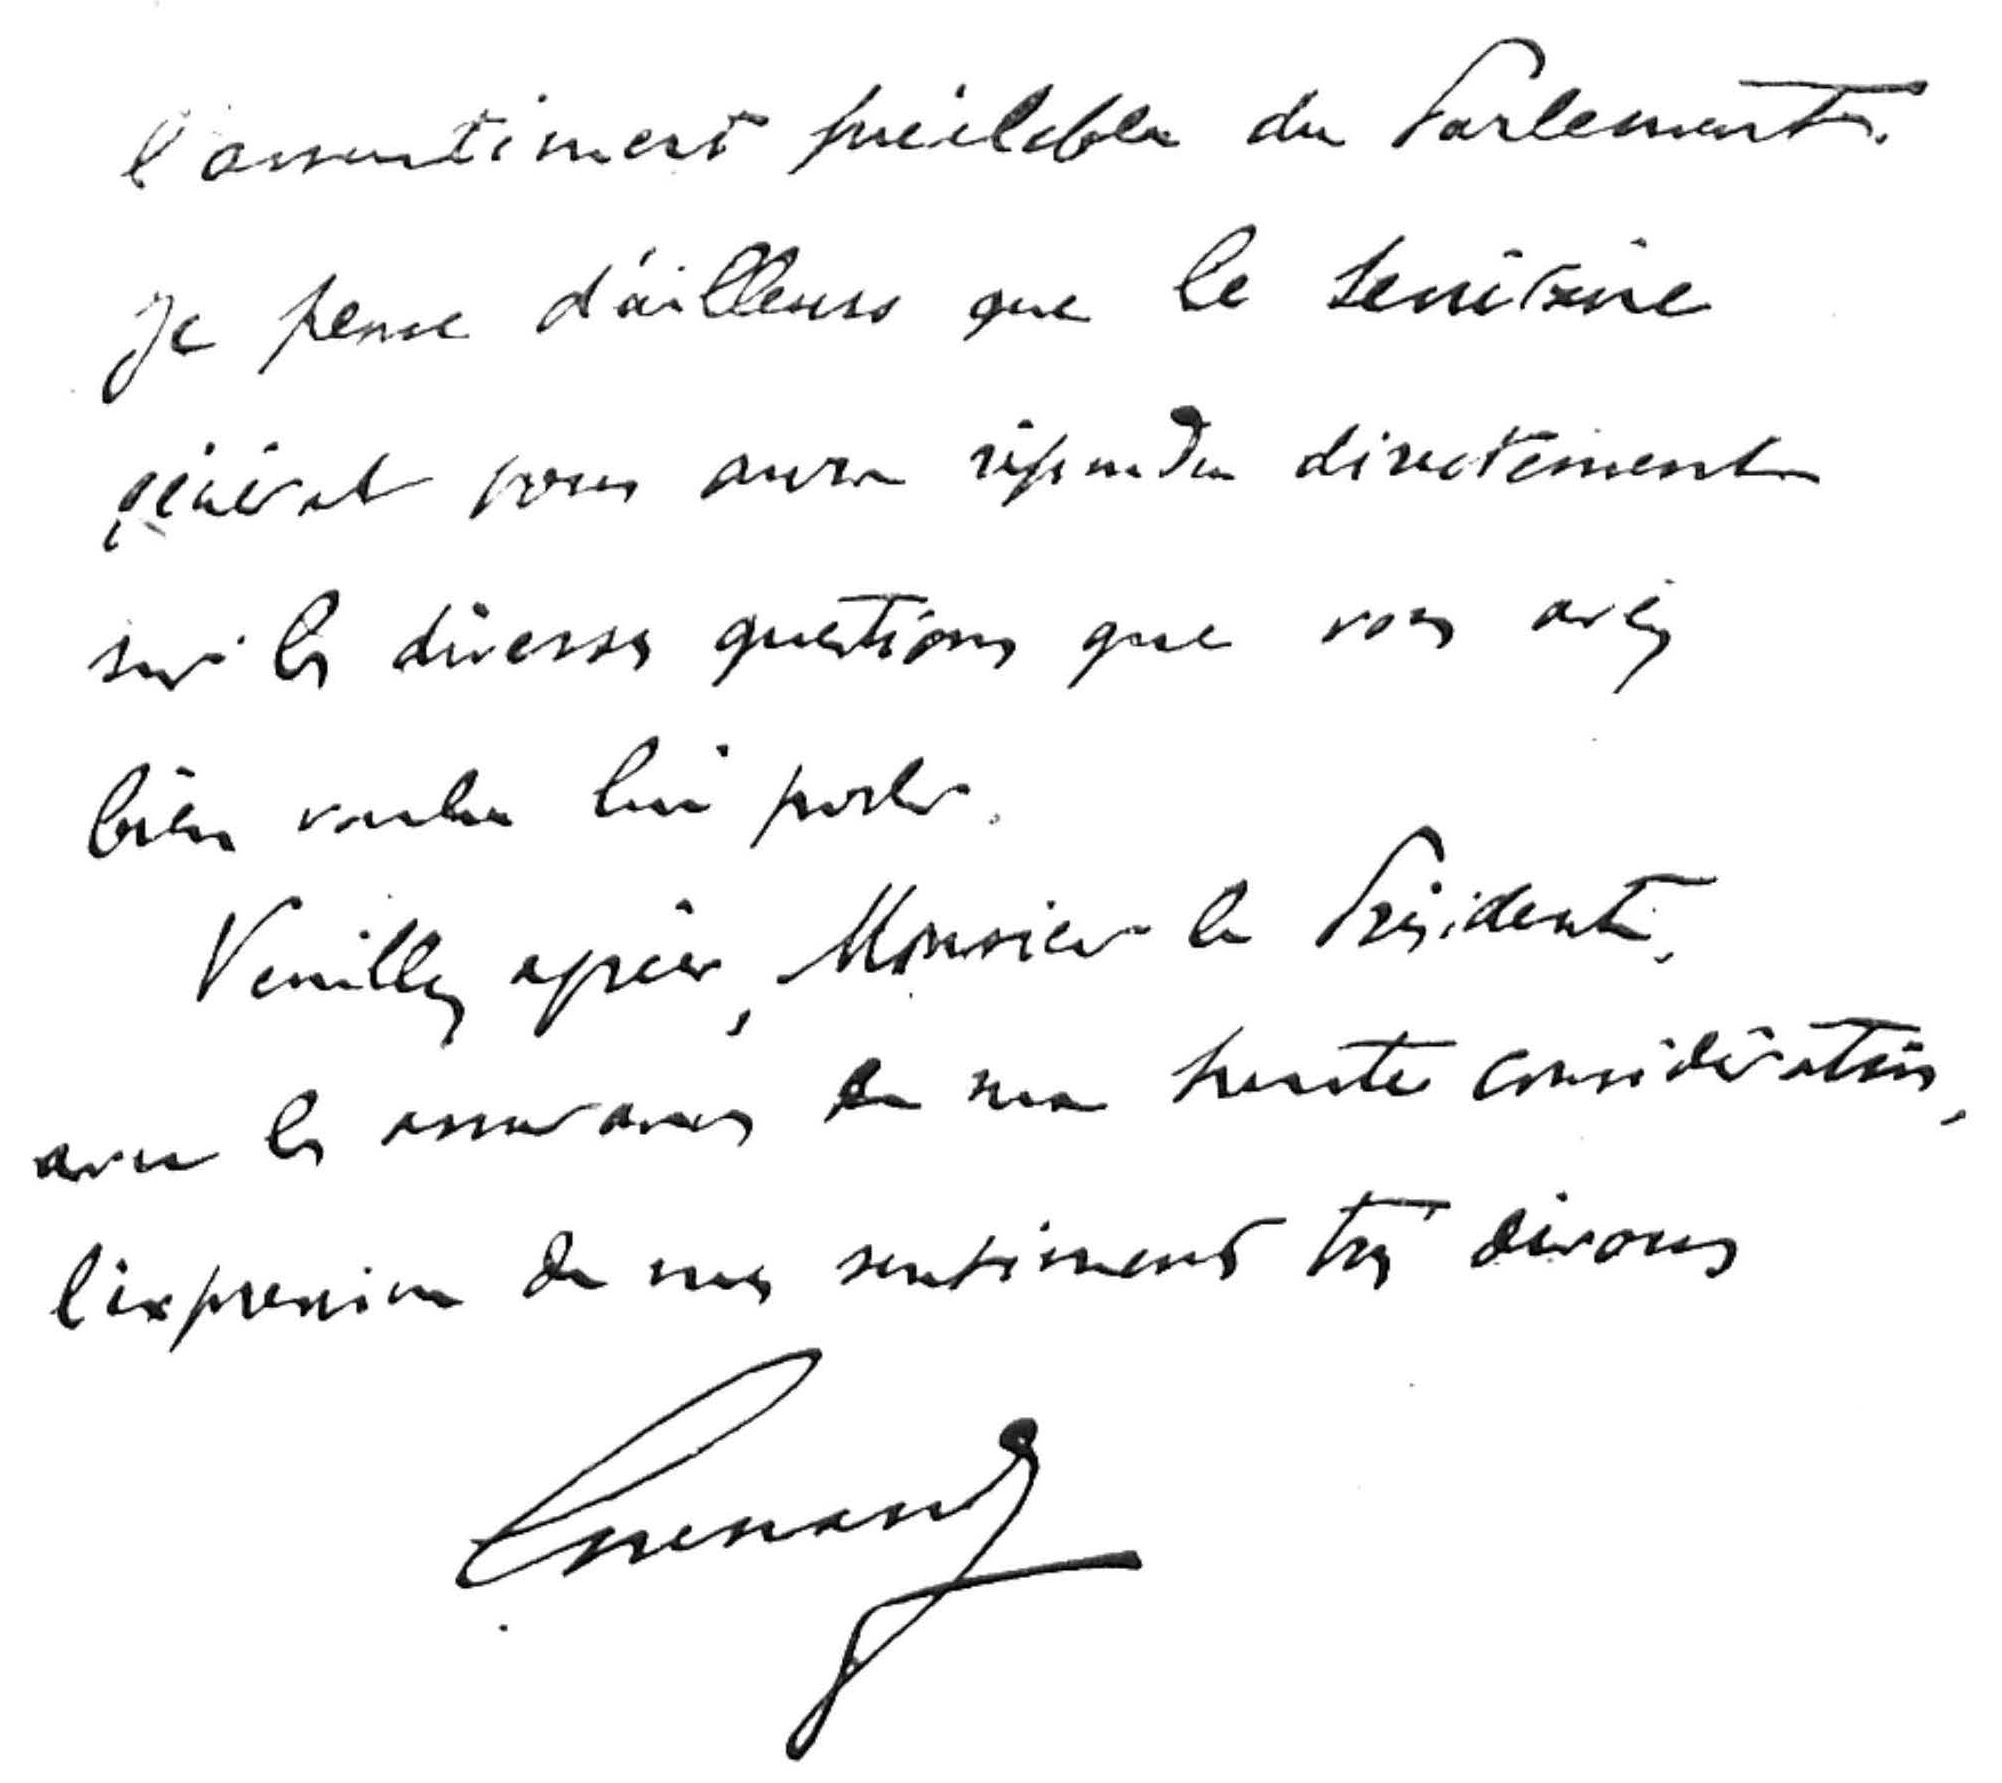 l'assentiment préalable du Parlement.
Je pense d'ailleurs que le
général vous aura répondu directement
sur les diverses questions que vous avez
bien voulu lui poser.
Veuillez agréer, Monsieur le Président,
avec les assurances de ma haute considération,
l'expression de mes sentiments très dévoués